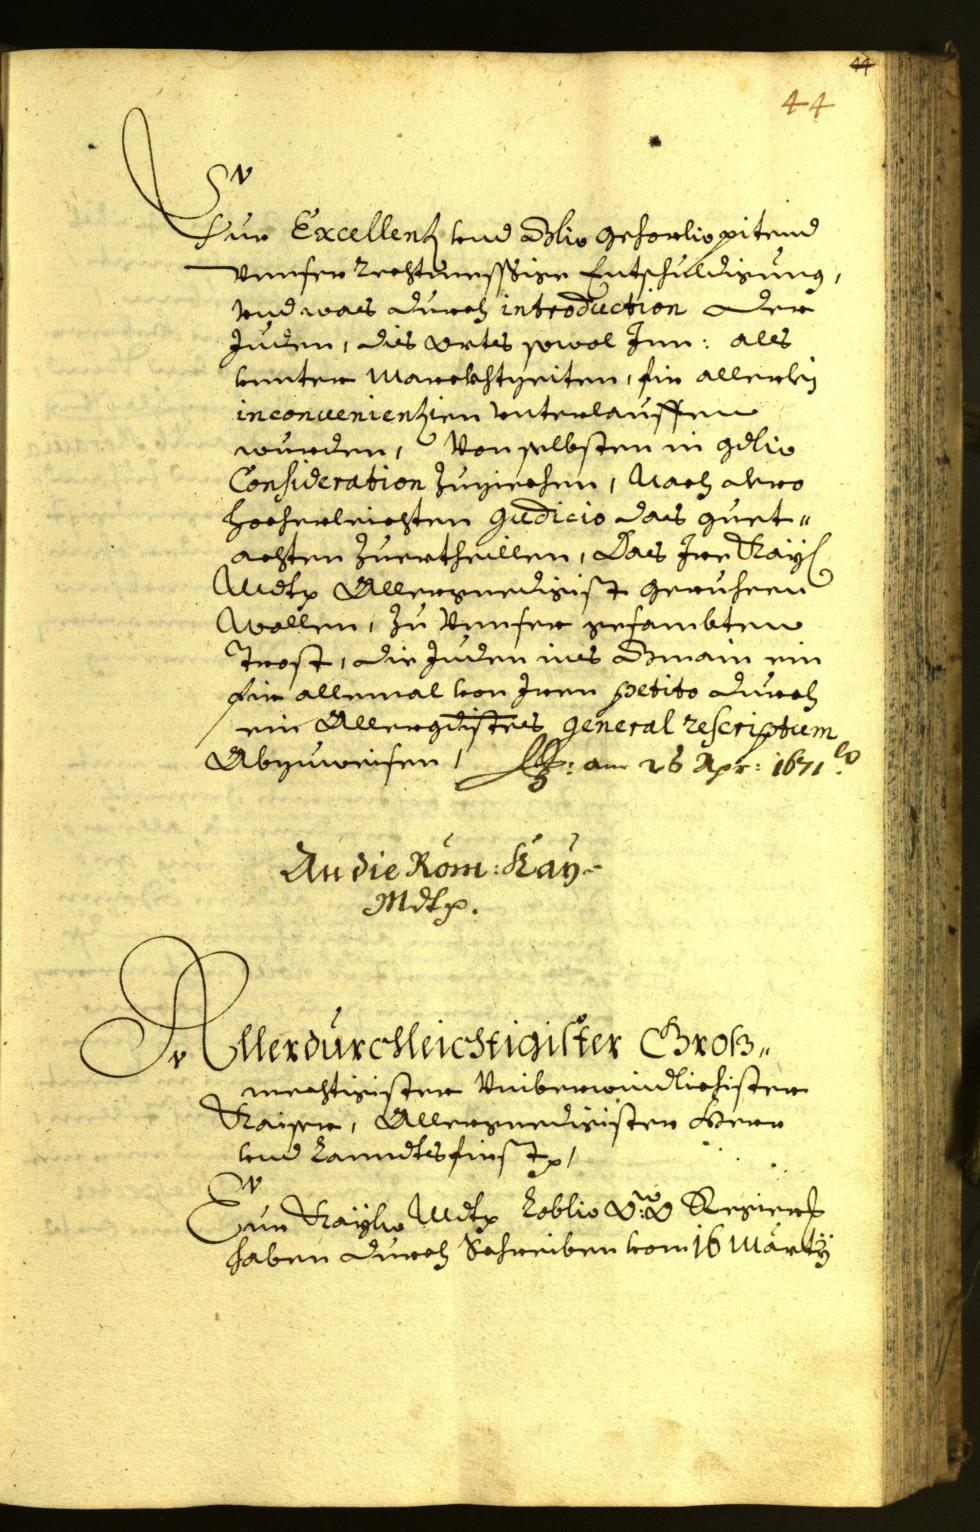 44
44
Eur Excellentz vnd Gdlo gehorl: pitend
Vnnser rechtmessige Entschuldigung,
vnd was durch introduction der
Juden, dis Orts sowol Inn: als
vnnter Marckhtzeiten, für allerley
inconuenientzien vnterlauffen
wurden, Von selbsten in gdlo
Consideration zuziechen, Nach dero
hocherleichten Judicio das guet-
achten zuerthaillen, Das Ire Kaÿ:
Mdtt Allergnedigist geruhen
Wollen, zu Vnnser gesambten
Trost, die Juden ins Gmain ein
für allemal von Iren petito durch
ein Allergdistes general rescriptum
Abzuweisen, am 28 Apr: 1671
An die Röm: Kaÿ-
Mdtt.
Allerdurchleichtigister Groß-
mechtigister Vniberwindlichister
Kaiser, Allergnedigister Herr
vnd Lanndtsfürst,
Eur Kaÿ: Mdtt Loblio O:Ö Regier:
haben durch Schreiben vom 16 Märtÿ